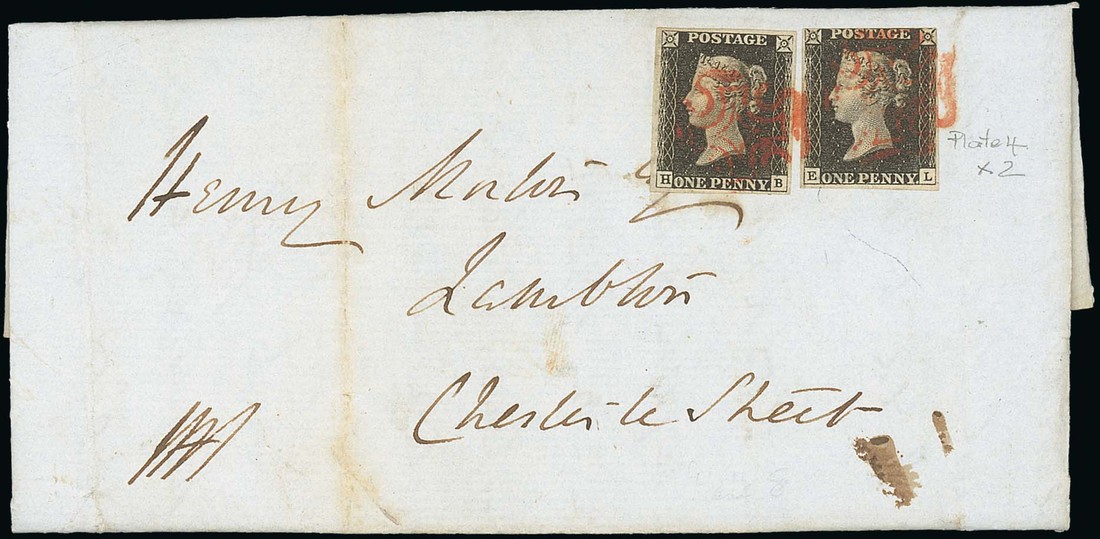 POSTAGE
H ONE PENNY B
POSTAGE
E ONE PENNY L
Plate 4
x 2
Henry Morton Esq
Lambton
Chester le Street